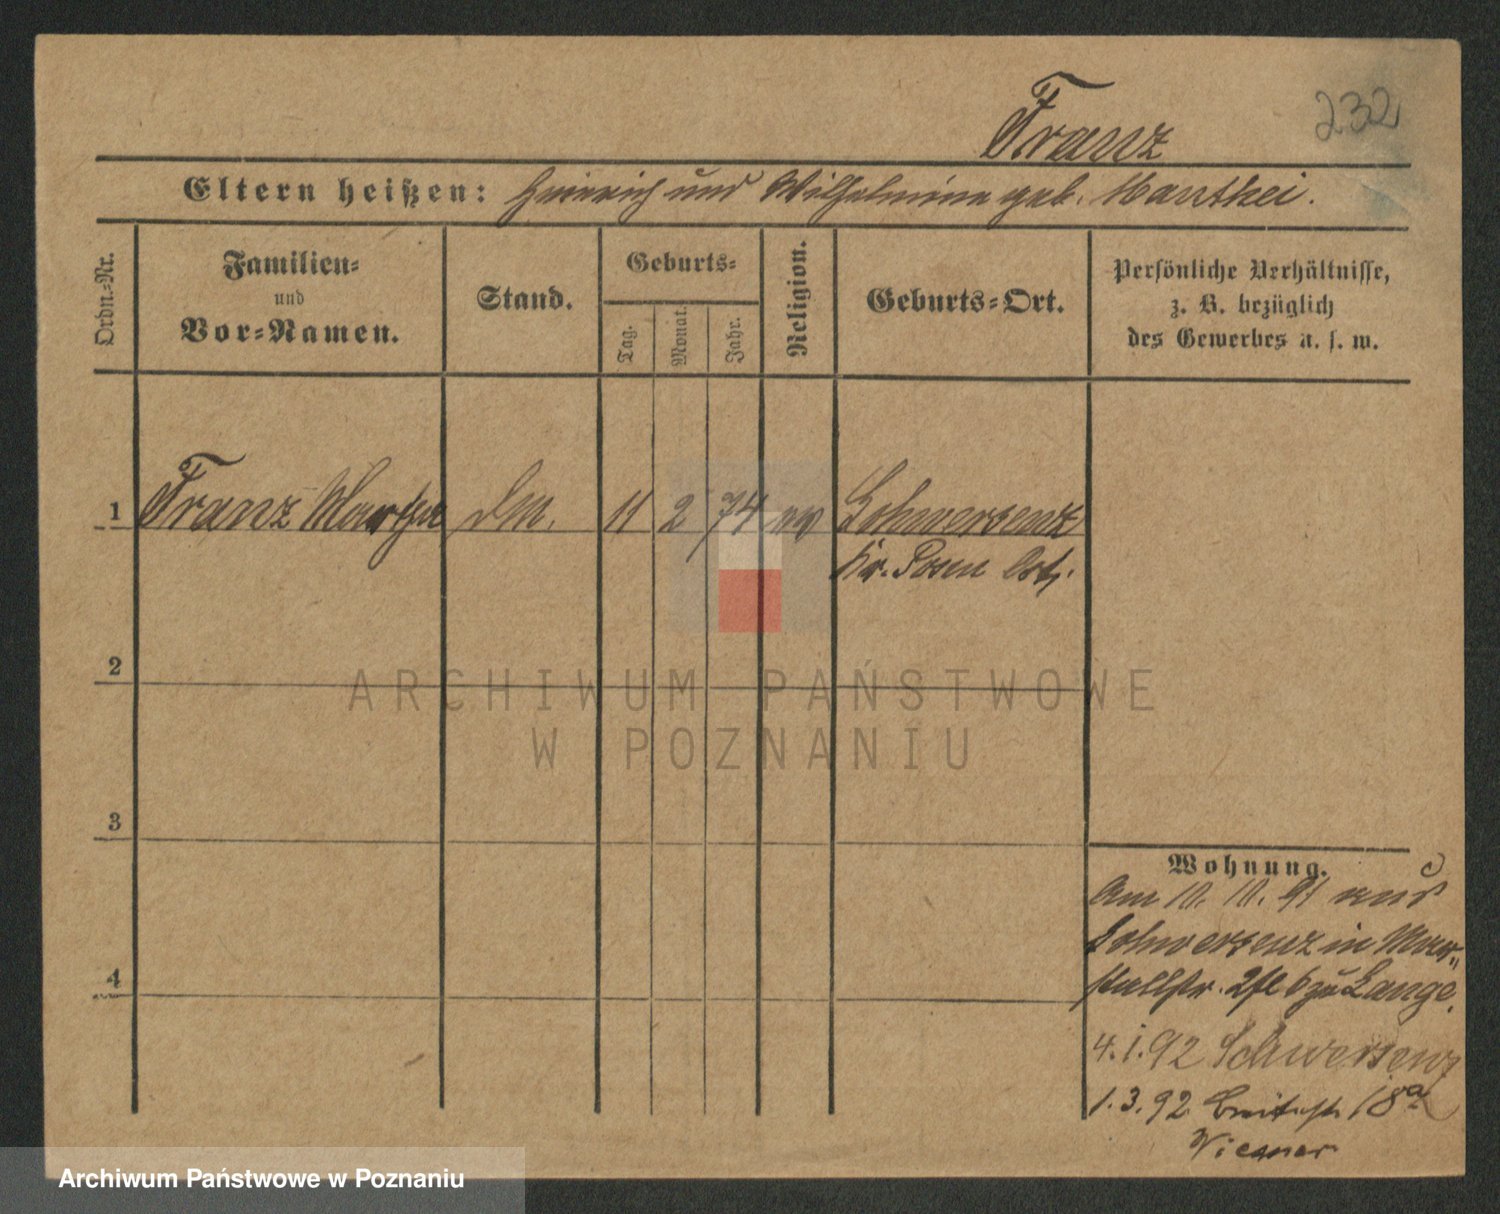 232
Franz
Eltern heißen: Heinrich und Wilhelmine geb. Manthei.
Ordn.-Nr.
Familien-
und
Vor-Namen.
Stand.
Geburts-
Tag.
Monat.
Jahr.
Religion.
Geburts-Ort.
Persönliche Verhältnisse,
z. B. bezüglich
des Gewerbes u. s. w.
1 Franz Martha 11 2 74 ev Schwersenz
Kr. Posen Ost.
2
3
4
ARCHIWUM PAŃSTWOWE
W POZNANIU
Wohnung.
Am 10. 10. 91 aus
Schwersenz in Mar-
stallstr. 2 zu Lange.
4.1.92 Schwersenz
1.3.92 Breitestr 18a
Wiesner
Archiwum Państwowe w Poznaniu